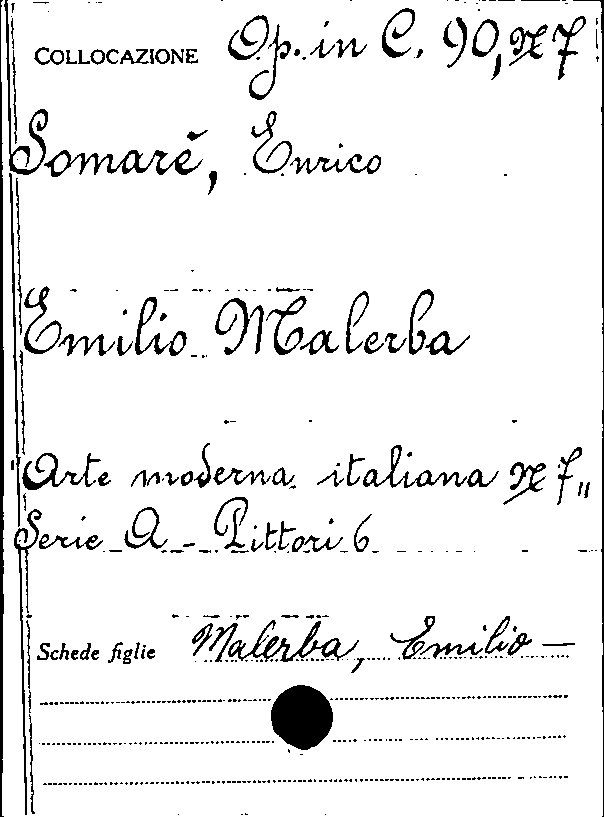 COLLOCAZIONE Op. in C. 90, N 7
Somaré, Enrico
Emilio Malerba
Arte moderna italiana N 7,,
Serie A - Pittori 6
Schede figlie Malerba, Emilio —